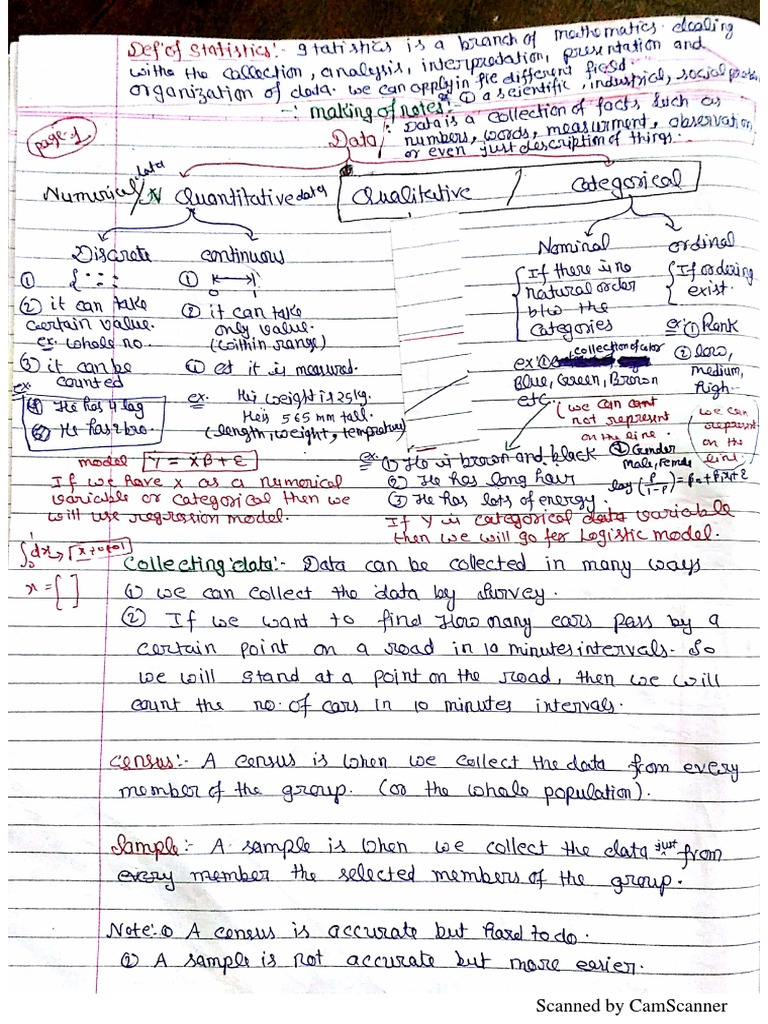 Def of Statistics:- Statistics is a branch of mathematics dealing
withe the collection, analysis, interpretation, presentation and
organization of data. we can apply in fie different field.
ex ① a scientific, industrial, social
-: making of notes:-
page-1
Data
: Data is a collection of facts such as
numbers, words, measurment, observation
or even just description of things.
Numerical/ data Quantitative data
Qualitative / Categorical
Discrate continuous
Nominal ordinal
① { : : :
① 0 1
② it can take
certain value.
ex. whole no.
③ it can be
counted
② it can take
only value.
(within range)
③ est it is measured.
ex.
④ He has 4 leg
⑤ He has 2 bro.
ex. He's weight is 25 kg.
He is 565 mm tall.
(length, weight, temprature)
If there is no
natural order
b/w the
categories
If ordering
exist.
ex: ① Rank
② low,
medium,
high.
ex ① collection of color
Blue, Green, Brown
etc.
(we can cant
not represent
on the line.
② Gender
Male, Female
we can
represent
on the
line
model Y = Xβ + ε
If we have x as a numerical
variable or categorical then we
will use regression model.
ex. ① He is brown and black
② He has long hair
③ He has lots of energy.
log(p/1-p) = β0 + β1x + ε
If Y is categorical data variable
then we will go for Logistic model.
∫ dx →
x = [ ]
Collecting data:- Data can be collected in many ways
① we can collect the data by Survey.
② If we want to find How many cars pass by a
certain point on a road in 10 minutes intervals. So
we will stand at a point on the road, then we will
count the no. of cars in 10 minutes intervals.
Census:- A census is when we collect the data from every
member of the group. (or the whole population).
Sample:- A sample is when we collect the data just from
every member the selected members of the group.
Note:- ① A census is accurate but hard to do.
② A sample is not accurate but more easier.
Scanned by CamScanner